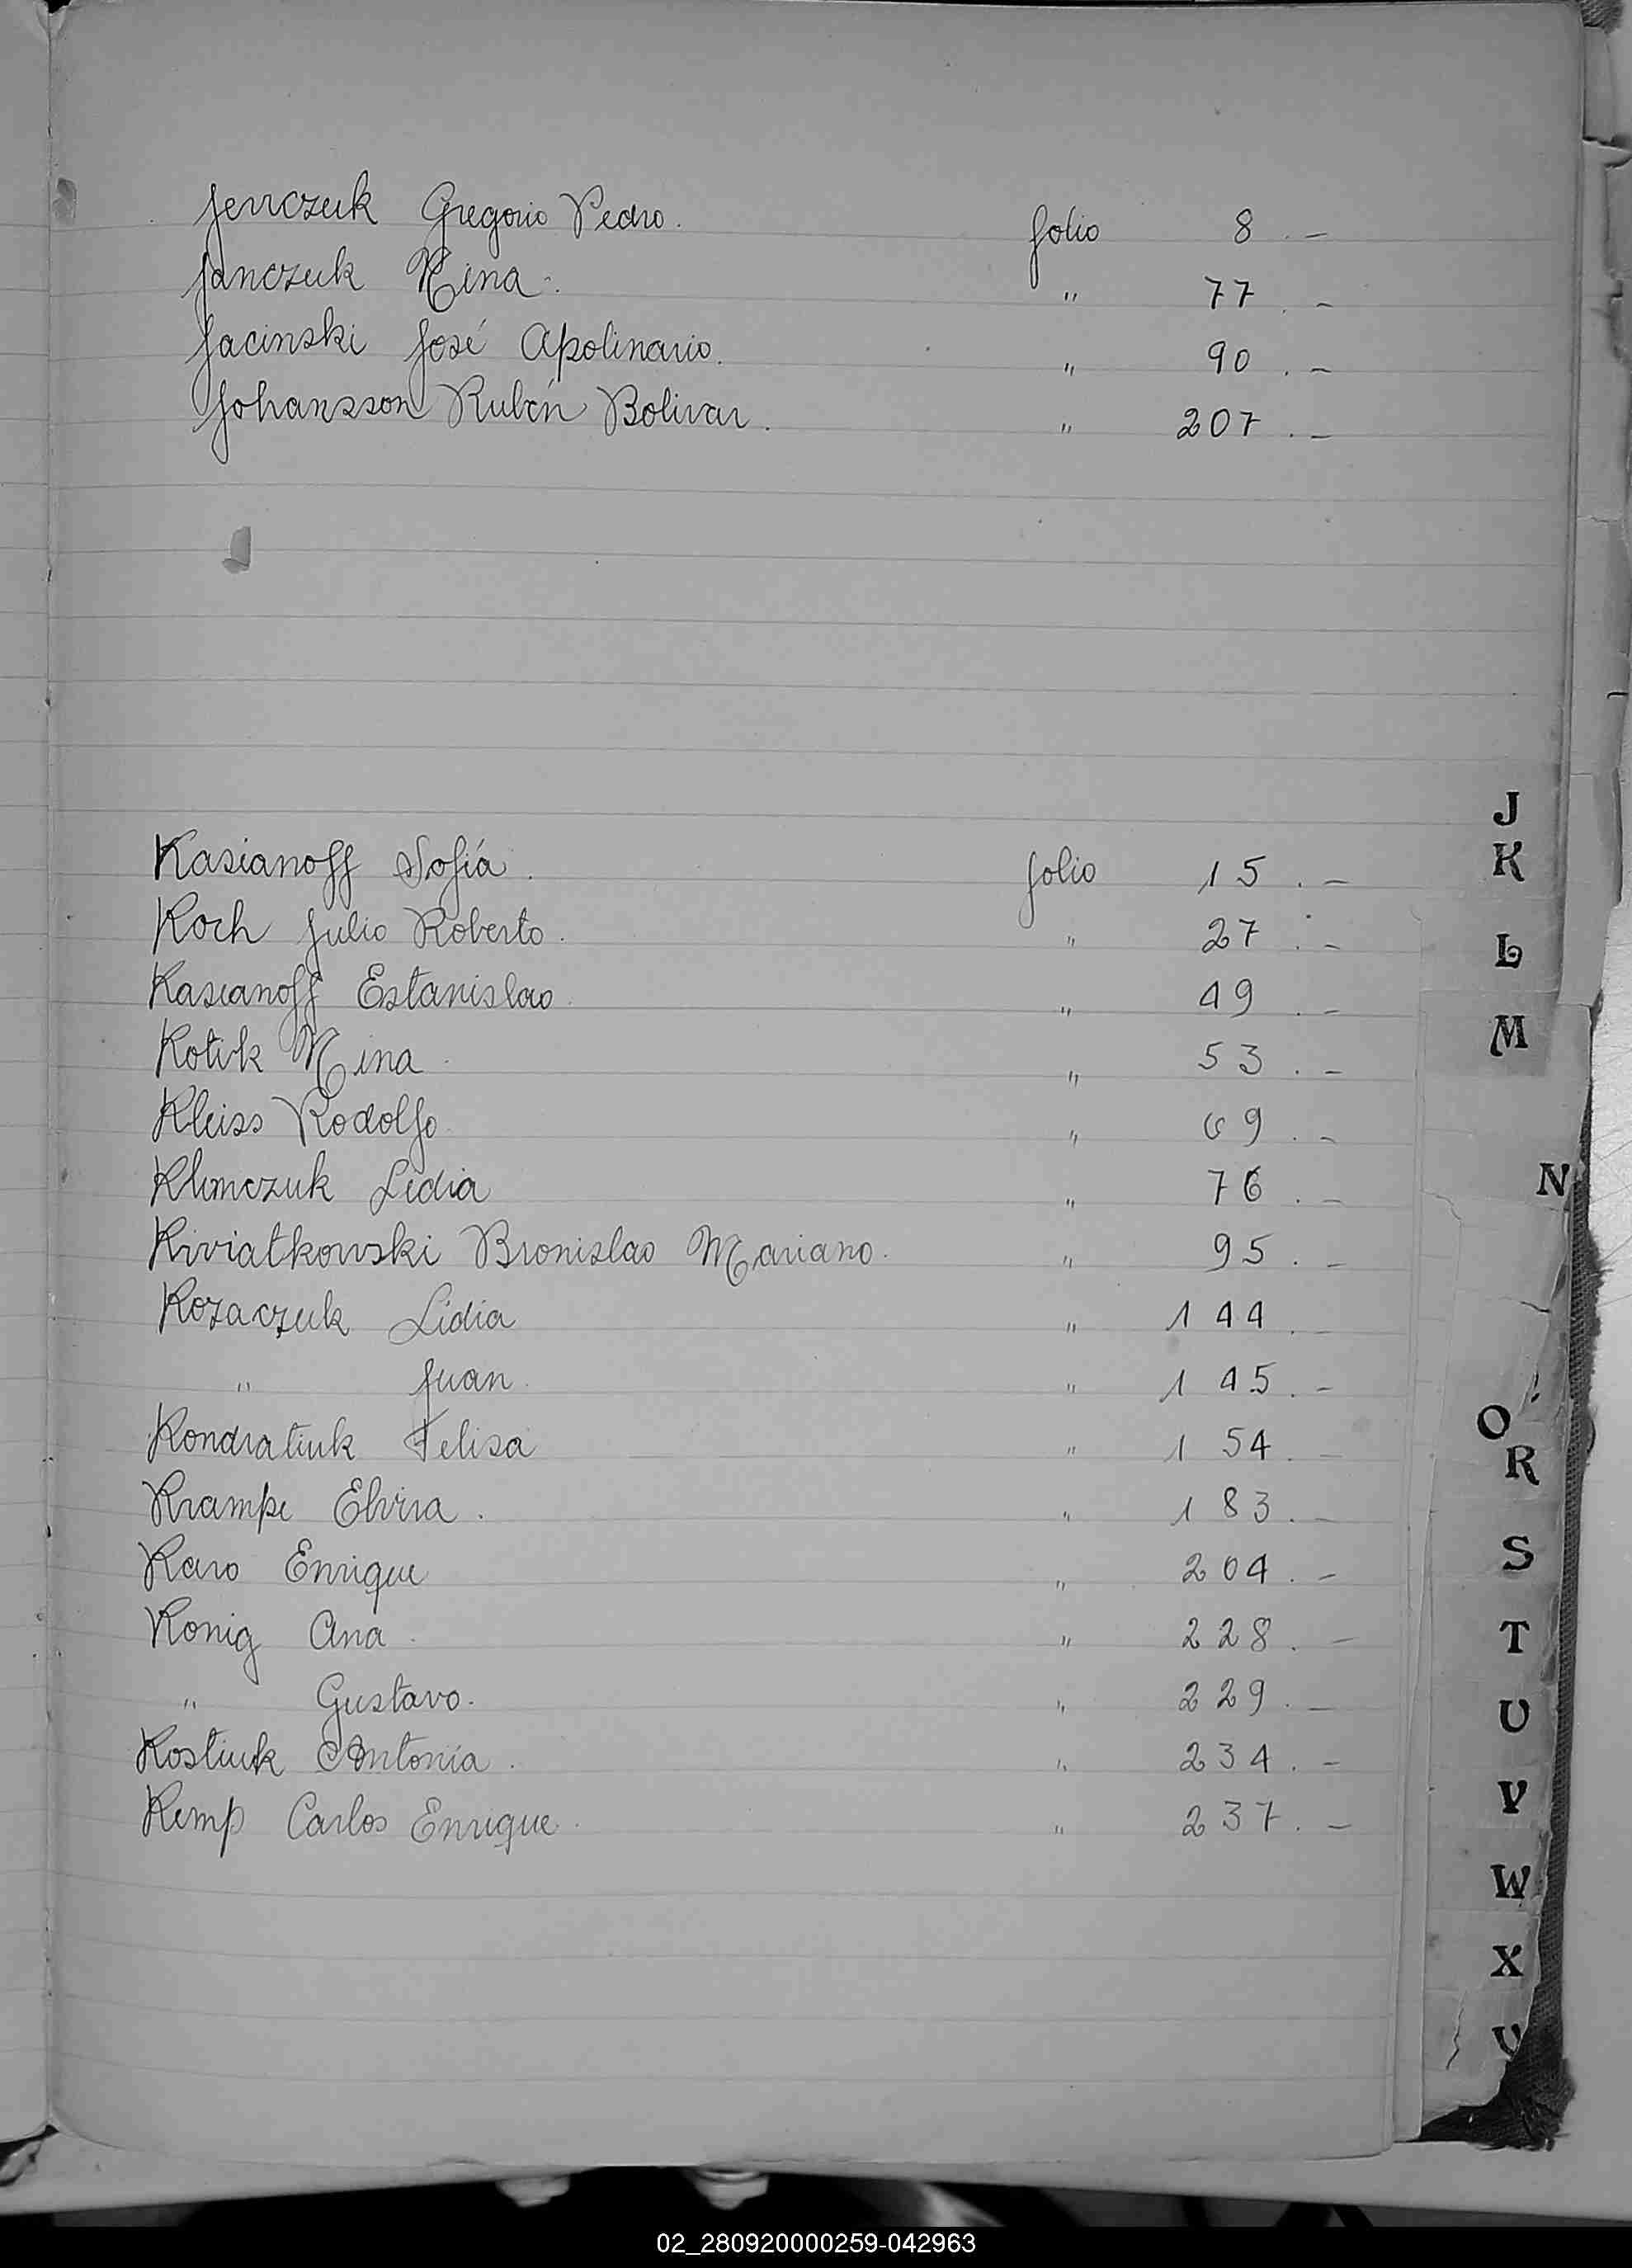 Jenczuk Gregorio Pedro. folio 8.–
Janczuk Nina. " 77.–
Jacinski José Apolinario. " 90.–
Johansson Rubén Bolivar. " 207.–
J
Kasianoff Sofía. folio 15.–
K
Koch Julio Roberto. " 27.–
L
Kasianoff Estanislao " 49.–
M
Kotik Nina " 53.–
Kleiss Rodolfo " 69.–
Klimczuk Lidia " 76.–
N
Kiviatkowski Bronislao Mariano. " 95.–
Kozaczuk Lidia " 144.–
" Juan. " 145.–
O
Kondratiuk Felisa " 154.–
R
Krampe Elvira. " 183.–
S
Karo Enrique " 204.–
Konig Ana. " 228.–
T
" Gustavo. " 229.–
U
Kostiuk Antonia. " 234.–
V
Kemp Carlos Enrique. " 237.–
W
X
02_280920000259-042963